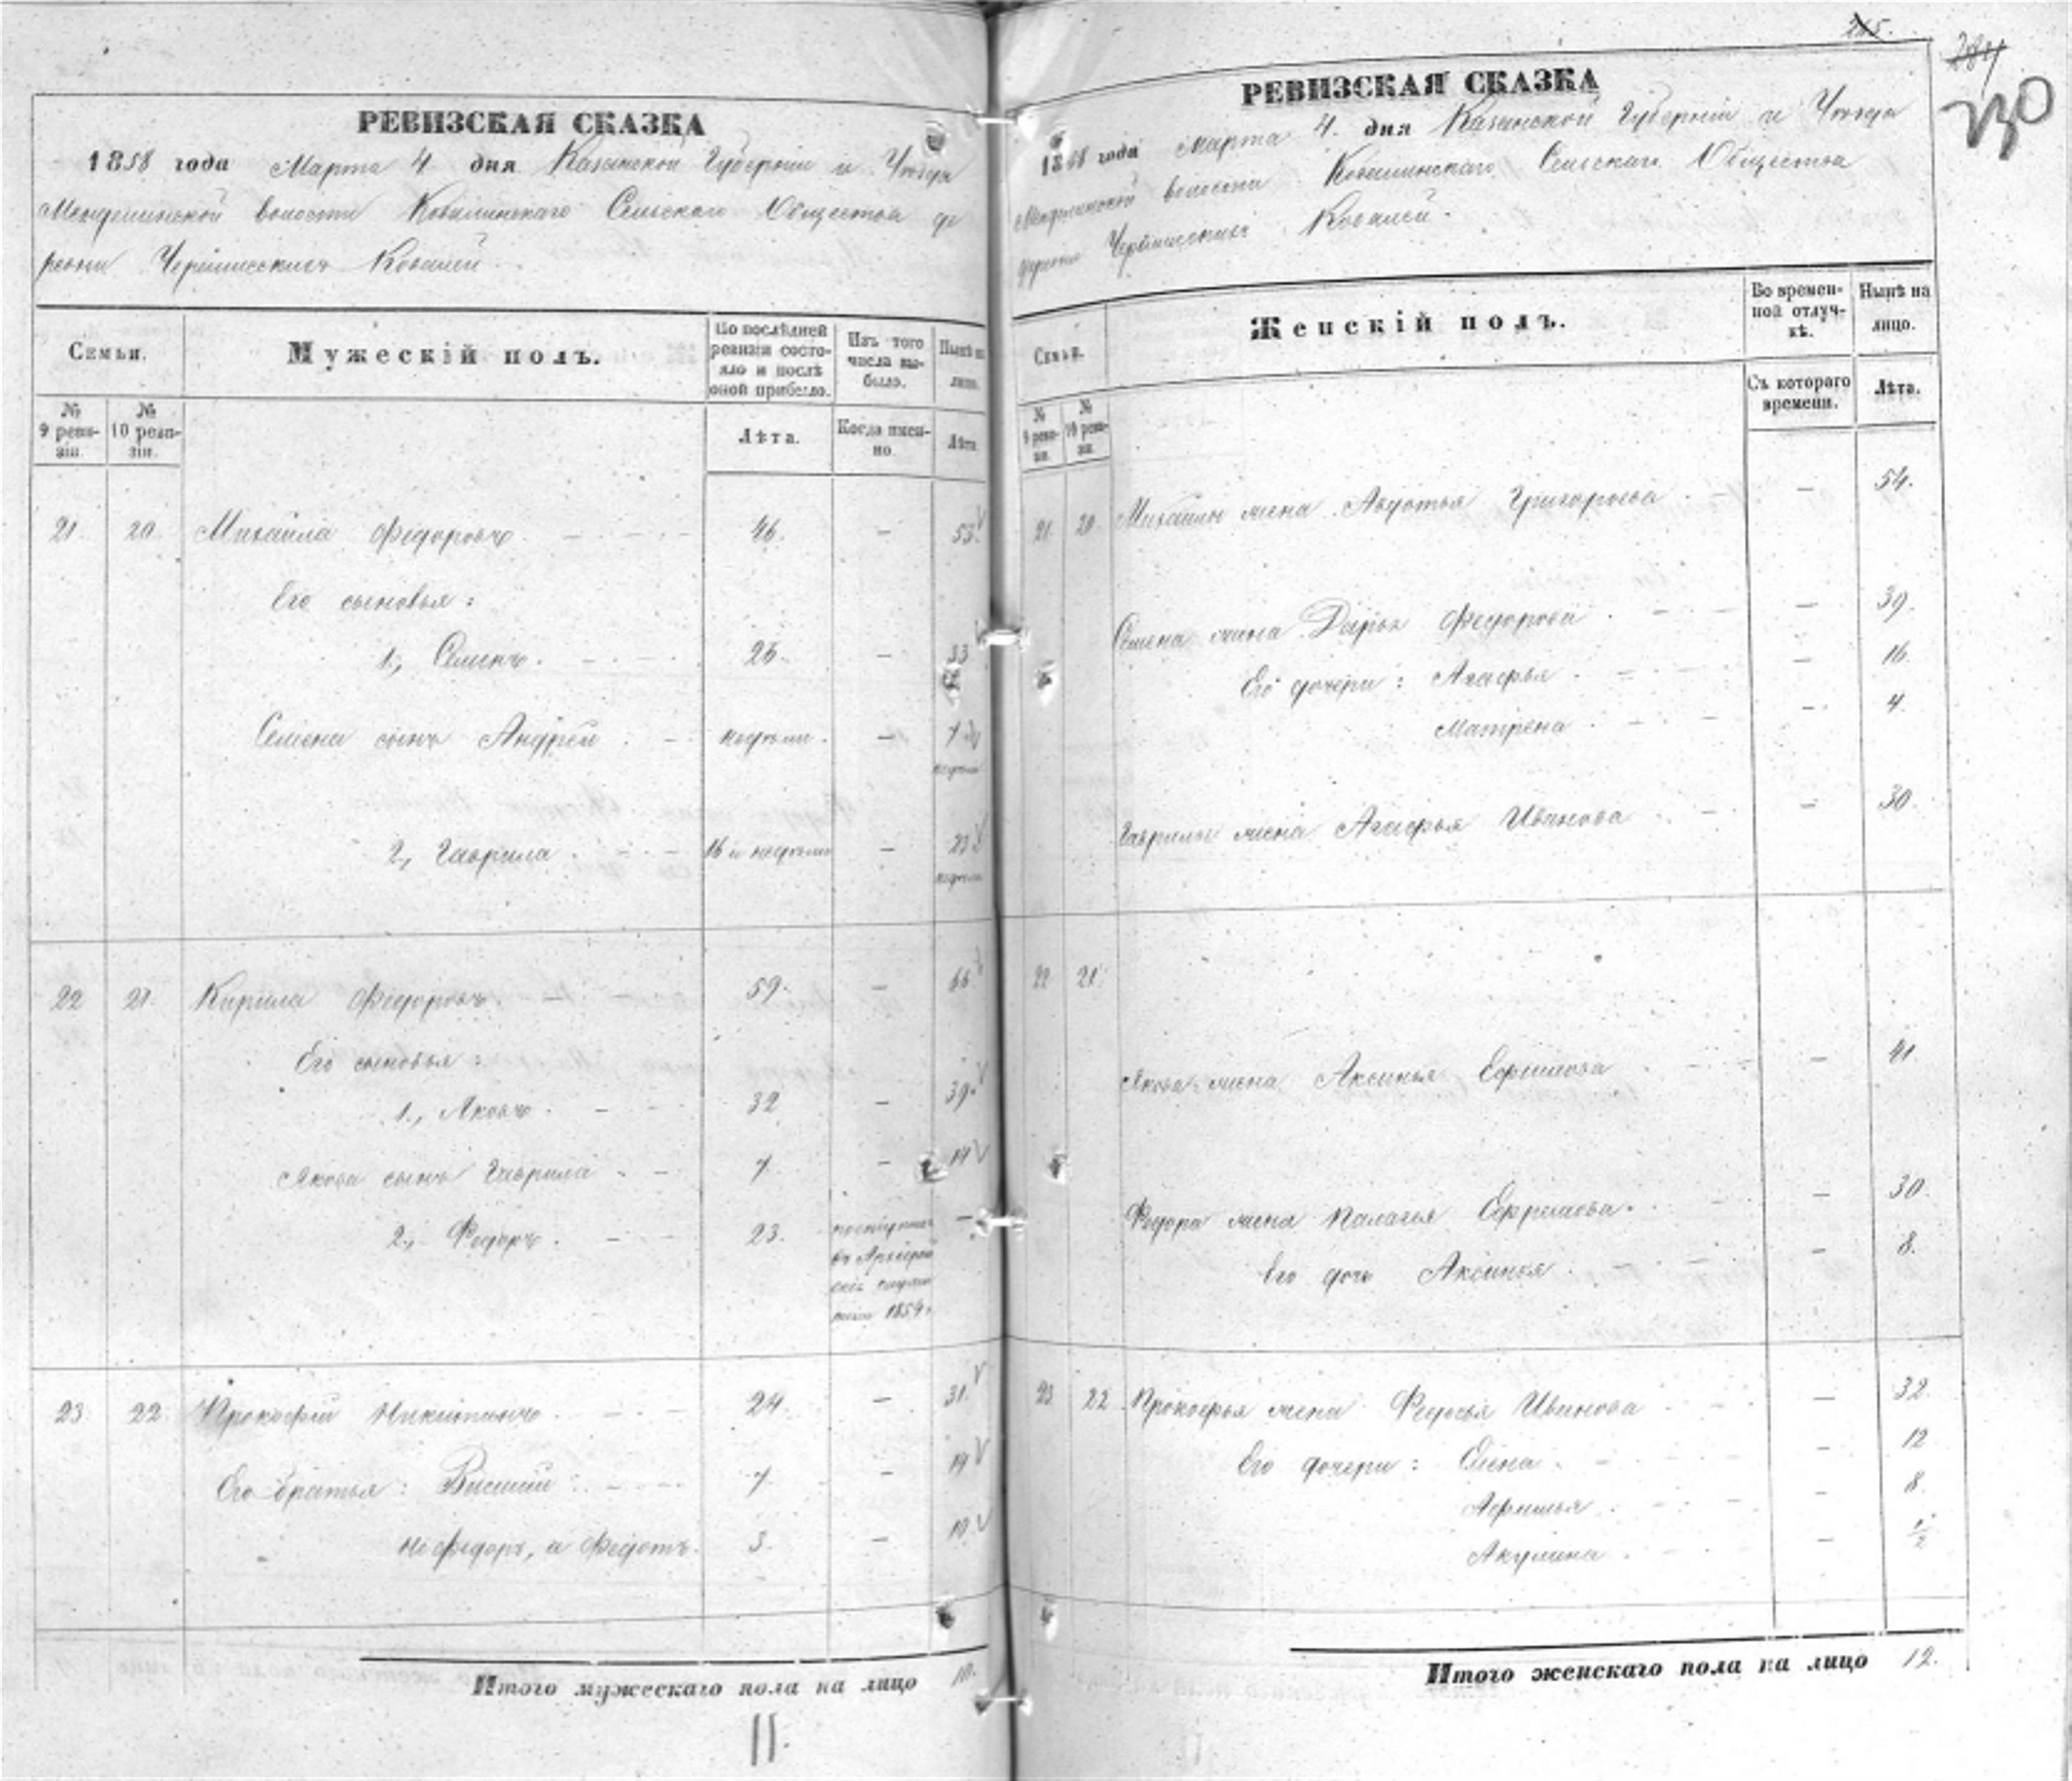 РЕВИЗСКАЯ СКАЗКА
1858 года Марта 4 дня Казанской Губерніи и Уѣзда
волости Ковалинскаго Сельскаго Общества де
ревни Черемисскихъ Ковалей
Семьи.
Мужескій полъ.
По послѣдней ревизіи состояло и послѣ оной прибыло.
Изъ того числа выбыло.
Нынѣ на лицо.
№ 9 ревизіи.
№ 10 ревизіи.
Лѣта.
Когда именно.
Лѣта.
21. 20. Михайла Федоровъ 46. — 53.
Его сыновья:
1., Семенъ. 26. — 33
Семена сынъ Андрей недѣли. — 7 недѣли
2., Гаврила 16 и недѣли — 23 недѣли
22 21. Кирила Федоровъ. 59. — 66
Его сыновья:
1., Яковъ. 32 — 39.
Якова сынъ Гаврила 7. — 14
2., Федоръ. 23. —
въ
1854.
23 22 Прокофій Никитинъ 24. — 31.
Его братья: Василій 7. — 14
Не федоръ, а Федотъ. 3. — 10.
Итого мужескаго пола на лицо 10.
11.
215.
284
230
РЕВИЗСКАЯ СКАЗКА
1858 года Марта 4. дня Казанской Губерніи и Уѣзда
волости Ковалинскаго Сельскаго Общества
деревни Черемисскихъ Ковалей.
Семьи.
Женскій полъ.
Во временной отлучкѣ.
Нынѣ на лицо.
№ 9 ревизіи.
№ 10 ревизіи.
Съ котораго времени.
Лѣта.
21. 20. Михайлы жена Авдотья Григорьева — 54.
Семена жена Дарья Федорова — 39.
Его дочери: Агафья — 16.
Матрена — 4.
Гаврилы жена Агафья Иванова — 30.
22 21.
Якова жена Аксинья Ефимова — 41.
Федора жена Палагея Ефремова. — 30.
Его дочь Аксинья — 8.
23 22 Прокофья жена Федосья Иванова — 32.
Его дочери: Елена — 12
Афимья — 8.
Акулина — 1/2
Итого женскаго пола на лицо 12.